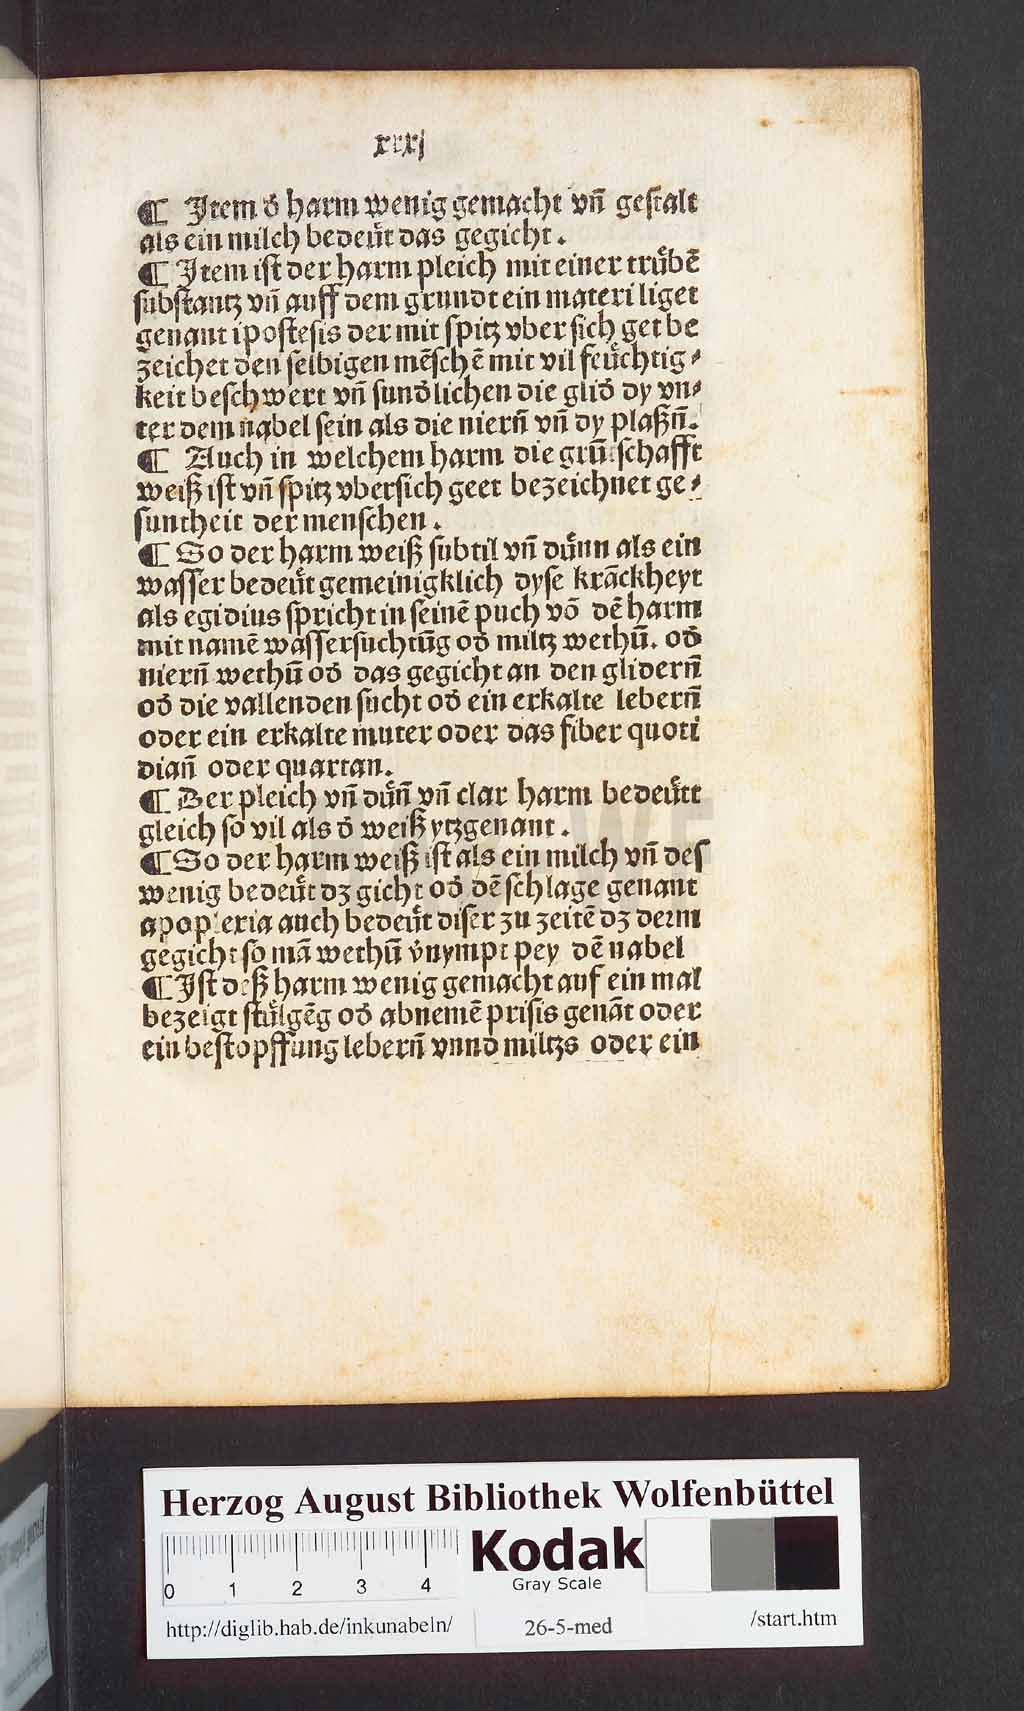 xxxj
¶ Item d̄ harm wenig gemacht vn̄ geſtalt
als ein milch bedeuͤt das gegicht.
¶ Item iſt der harm pleich mit einer truͤbē
ſubſtantz vn̄ auff dem grundt ein materi liget
genant ipoſteſis der mit ſpitz vber ſich get be
zeichet den ſelbigen mēſchē mit vil feuͤchtig⸗
keit beſchwert vn̄ ſund̄lichen die glid̄ dy vn⸗
ter dem nabel ſein als die niern̄ vn̄ dy plaßn̄.
¶ Auch in welchem harm die grūtſchafft
weiß iſt vn̄ ſpitz vberſich geet bezeichnet ge⸗
ſuntheit der menſchen.
¶ So der harm weiß ſubtil vn̄ duͤnn als ein
waſſer bedeuͤt gemeinigklich dyſe krāckheyt
als egidius ſpricht in ſeinē puch vō dē harm
mit namē waſſerſuchtūg od̄ miltz wethū. od̄
niern̄ wethū od̄ das gegicht an den glidern̄
od̄ die vallenden ſucht od̄ ein erkalte lebern̄
oder ein erkalte muter oder das fiber quoti
dian̄ oder quartan.
¶ Der pleich vn̄ duͤn̄ vn̄ clar harm bedeuͤtt
gleich ſo vil als d̄ weiß ytzgenant.
¶ So der harm weiß iſt als ein milch vn̄ deſ
wenig bedeuͤt dz gicht od̄ dē ſchlage genant
apoplexia auch bedeuͤt diſer zu zeitē dz derm
gegicht ſo mā wethū v̄nympt pey dē nabel
¶ Iſt deß harm wenig gemacht auf ein mal
bezeigt ſtuͤlgēg od̄ abnemē priſis genāt oder
ein beſtopffung lebern̄ vnnd miltzs oder ein
Herzog August Bibliothek Wolfenbüttel
0 1 2 3 4
Kodak
Gray Scale
http://diglib.hab.de/inkunabeln/
26-5-med
/start.htm